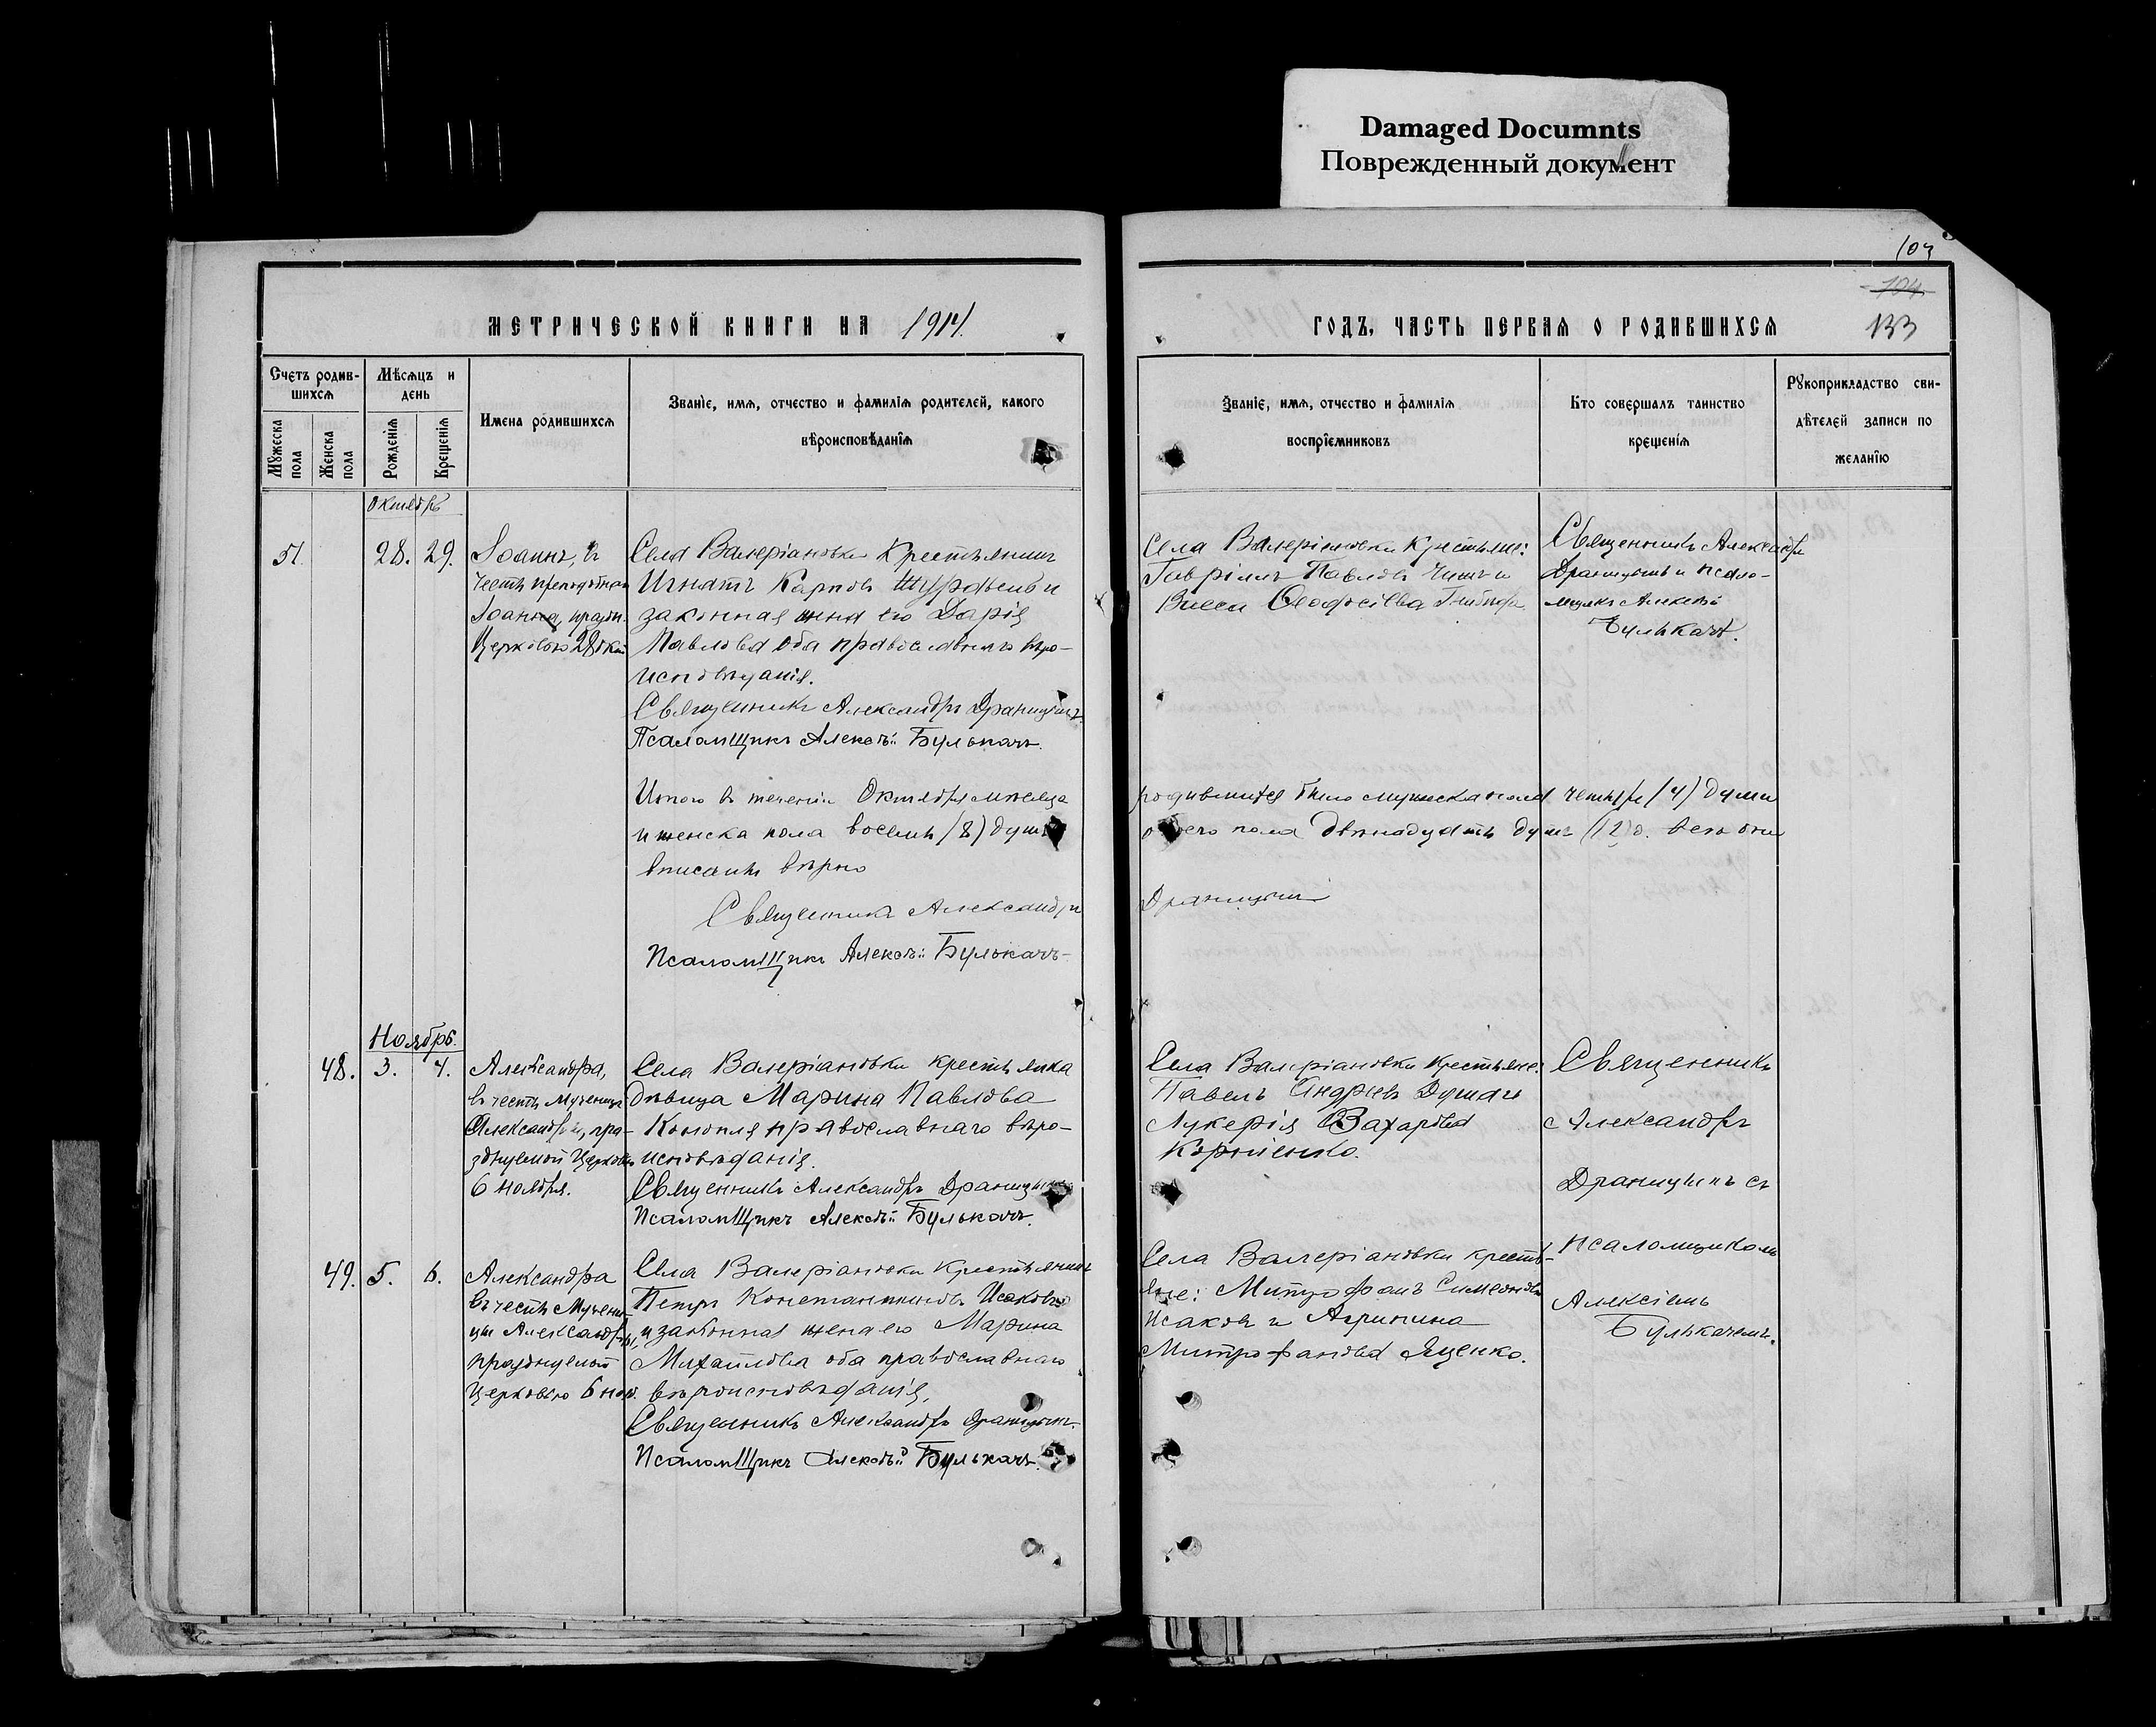 Damaged Documnts
Поврежденный документ
103
104
133
МЕТРИЧЕСКОЙ КНИГИ НА 1914.
ГОДЪ, ЧАСТЬ ПЕРВАЯ О РОДИВШИХСЯ
Счетъ родив-
шихся
Мужеска пола
Женска пола
Мѣсяцъ и
день
Рожденія
Крещенія
Имена родившихся
Званіе, имя, отчество и фамилія родителей, какого
вѣроисповѣданія
Званіе, имя, отчество и фамилія
воспріемниковъ
Кто совершалъ таинство
крещенія
Рукоприкладство сви-
дѣтелей записи по
желанію
Октябрь
51 28. 29.
Іоаннъ, въ
честь преподобнаго
Іоанна, праздн.
Церковью 28 окт.
Села Валеріановки Крестьянинъ
Игнатъ Карповъ Журавель и
законная жена его Дарія
Павлова оба православнаго вѣро-
исповѣданія.
Священникъ Александръ Драницынъ
Псаломщикъ Алексѣй Булькачъ.
Села Валеріановки Крестьяне:
Гавріилъ Павловъ
Священникъ Александръ
Драницынъ и псало-
мщикъ Алексѣй
Булькачъ.
Итого въ теченіи Октября мѣсяца
и женска пола восемь (8) душъ
вписаны вѣрно
Священникъ Александръ
Псаломщикъ Алексѣй Булькачъ
родившихся было мужеска пола четыре (4) души
обоего пола двѣнадцать душъ (12) д.
Драницынъ
Ноябрь.
48. 3. 4.
Александра,
въ честь Мученицы
Александры, пра-
зднуемой Церковью
6 ноября.
Села Валеріановки крестьянка
дѣвица Марина Павлова
Конопля православнаго вѣро-
исповѣданія.
Священникъ Александръ Драницынъ
Псаломщикъ Алексѣй Булькачъ.
Села Валеріановки Крестьяне:
Павелъ Андреевъ
Лукерія Захарова
Корніенко.
Священникъ
Александръ
Драницынъ съ
псаломщикомъ
Алексіемъ
Булькачемъ.
49. 5. 6.
Александра
въ честь Мучени-
цы Александры,
празднуемой
Церковью 6 нояб.
Села Валеріановки Крестьянинъ
Петръ Константиновъ Исаковъ
и законная жена его Марина
Михайлова оба православнаго
вѣроисповѣданія.
Священникъ Александръ Драницынъ.
Псаломщикъ Алексѣй Булькачъ.
Села Валеріановки крестья-
яне: Митрофанъ Симеоновъ
Исаковъ и Агрипина
Митрофанова Яценко.